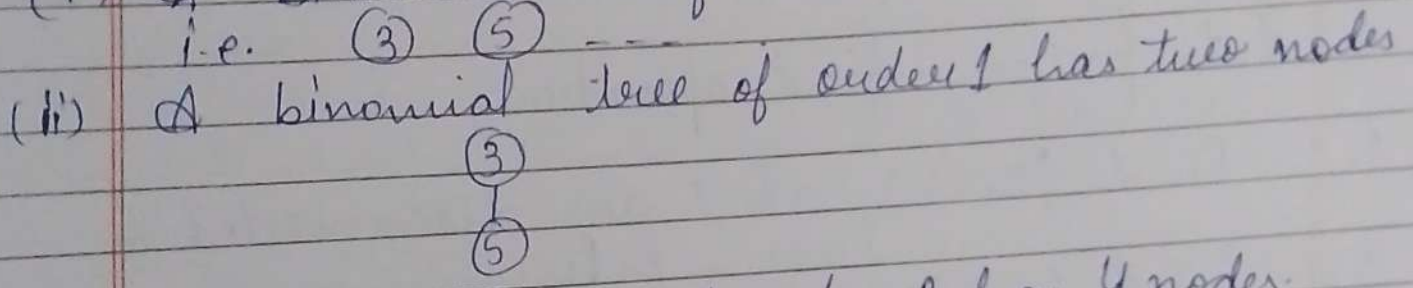 i.e. 3 5 ----
(ii) A binomial tree of order 1 has two nodes
3
5
4 nodes.